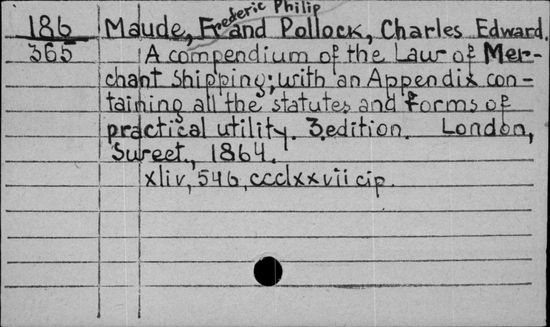 Frederic Philip
186 Maude, F. and Pollock, Charles Edward.
365 A compendium of the Law of Mer-
chant shipping; with an Appendix con-
taining all the statutes and forms of
practical utility. 3.edition. London,
Sweet., 1864.
xliv, 546, ccclxxvii cip.